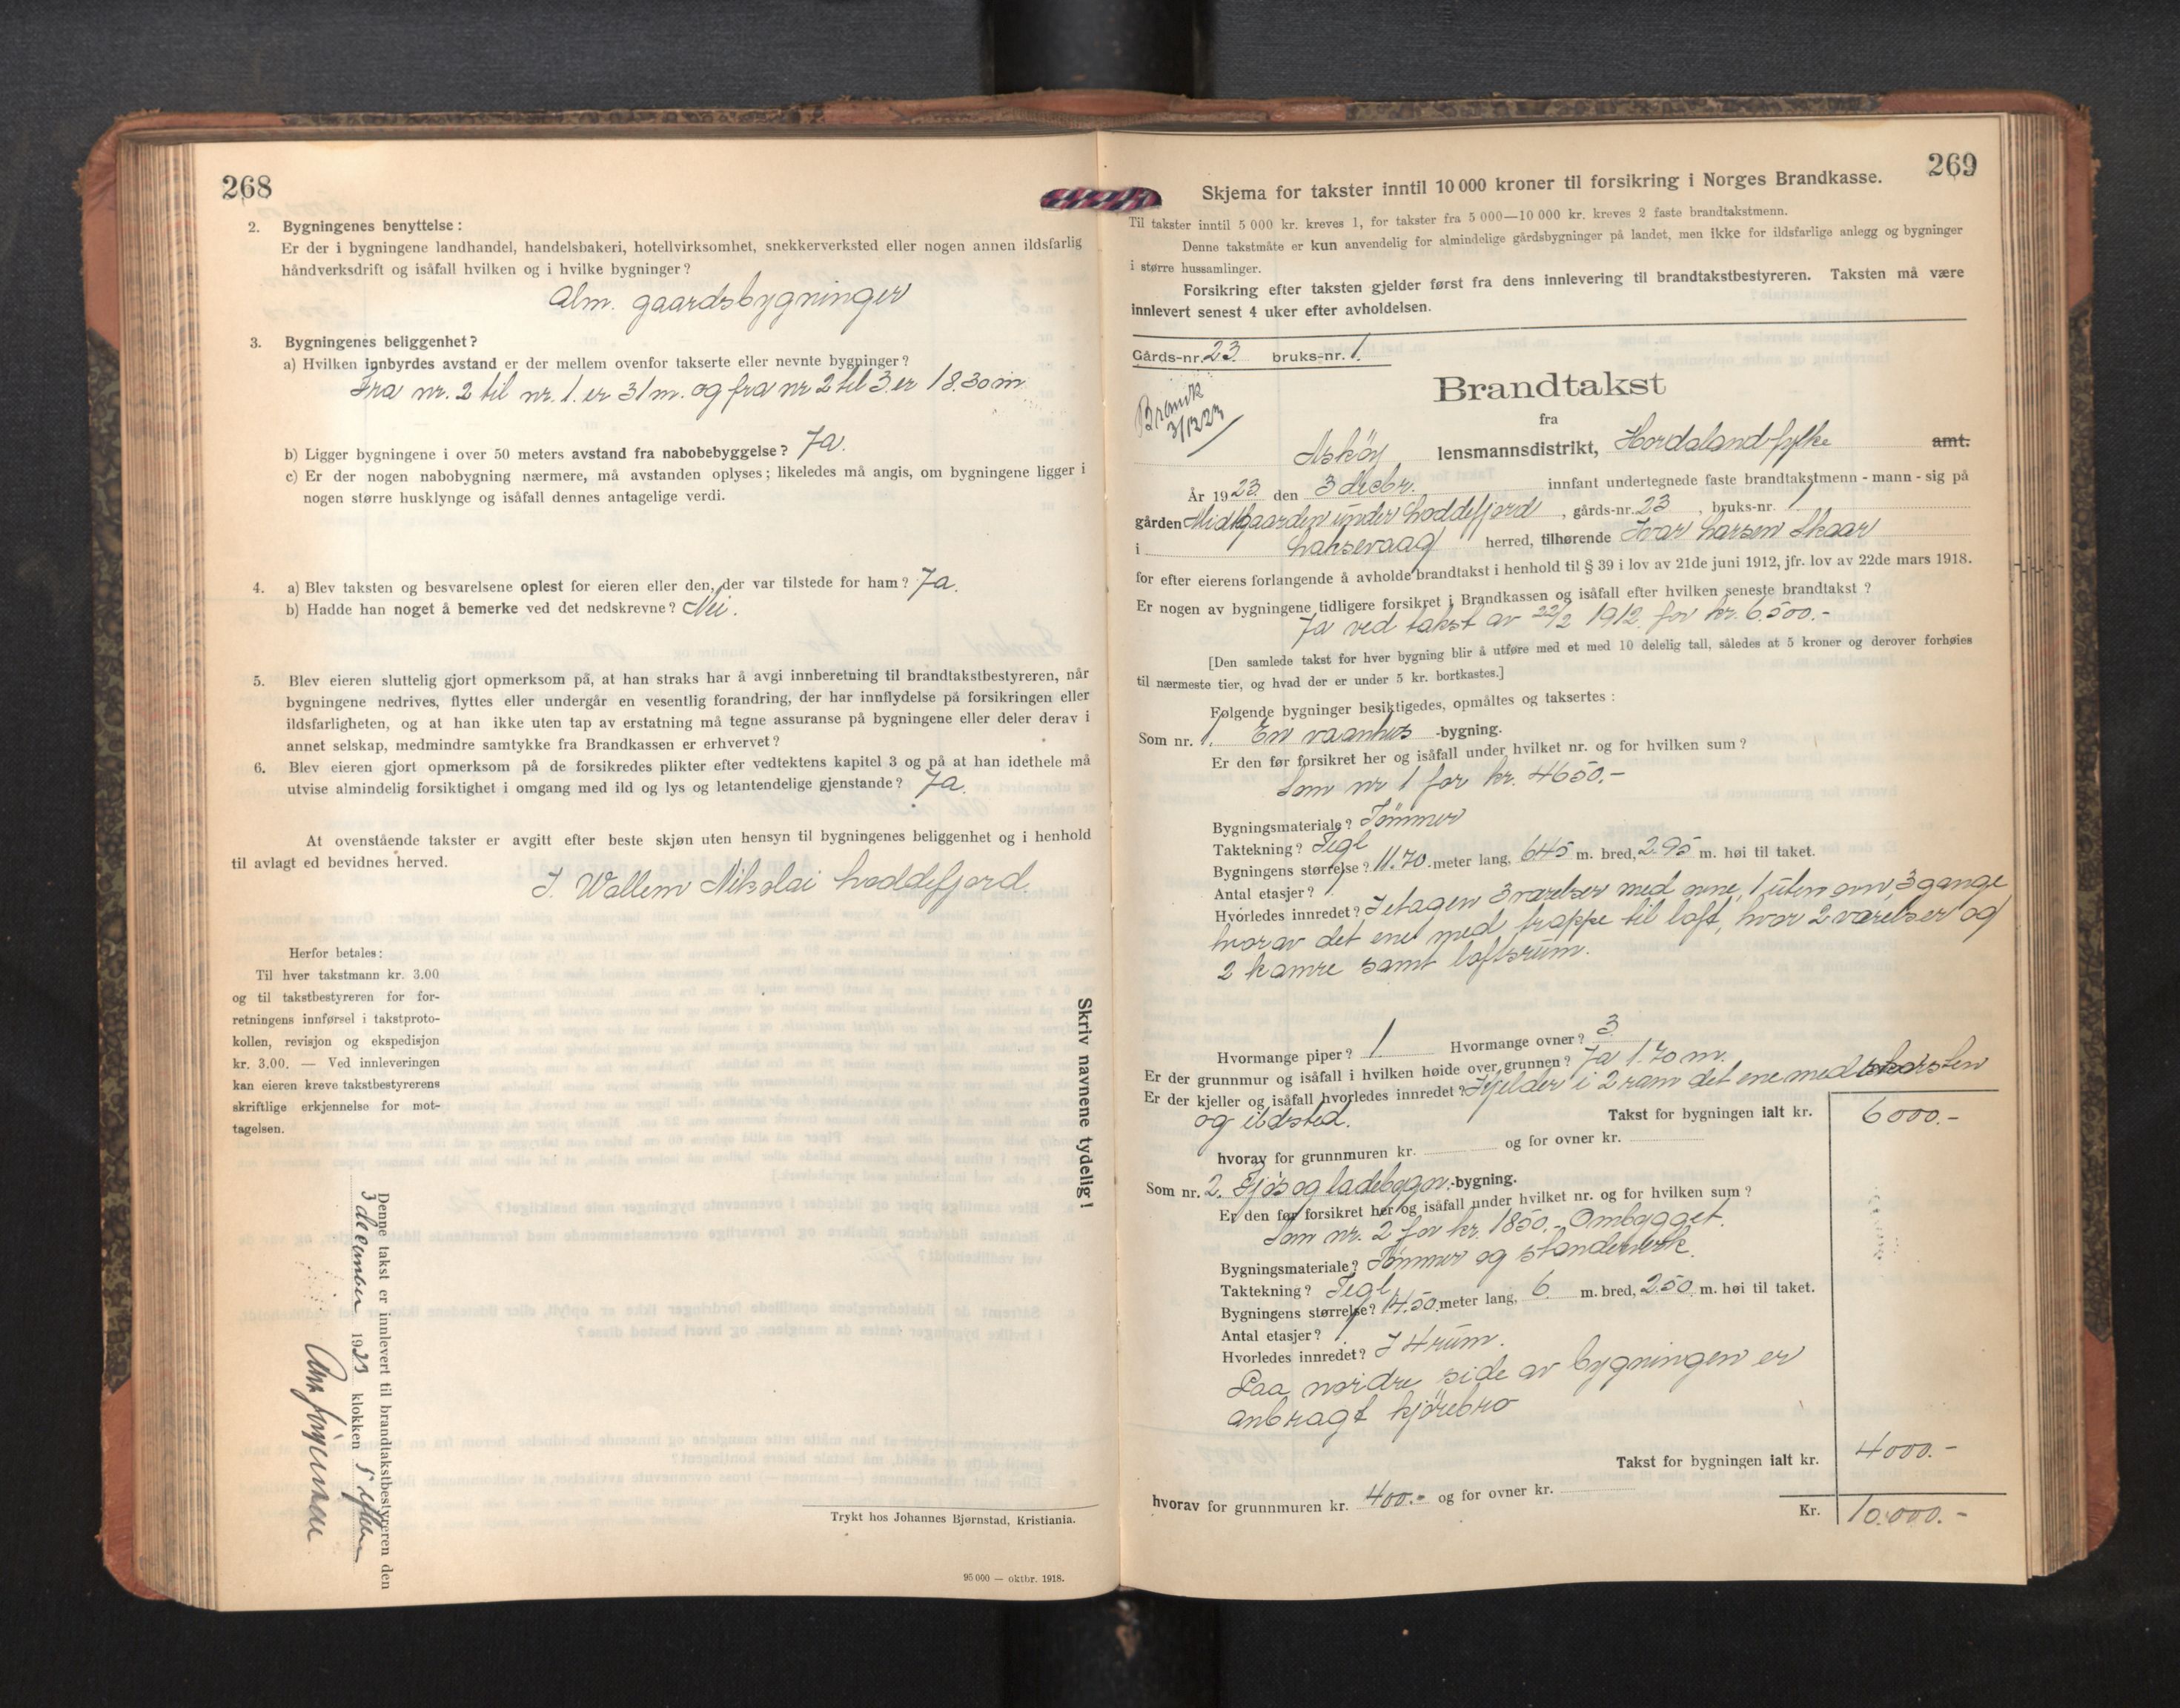 268
2. Bygningenes benyttelse:
Er der i bygningene landhandel, handelsbakeri, hotellvirksomhet, snekkerverksted eller nogen annen ildsfarlig
håndverksdrift og isåfall hvilken og i hvilke bygninger?
Alm. gaardsbygninger
3. Bygningenes beliggenhet?
a) Hvilken innbyrdes avstand er der mellem ovenfor takserte eller nevnte bygninger?
Fra nr. 2 til nr. 1. er 31 m. og fra nr 2 til 3. er 18.30 m
b) Ligger bygningene i over 50 meters avstand fra nabobebyggelse? Ja.
c) Er der nogen nabobygning nærmere, må avstanden oplyses; likeledes må angis, om bygningene ligger i
nogen større husklynge og isåfall dennes antagelige verdi.
4. a) Blev taksten og besvarelsene oplest for eieren eller den, der var tilstede for ham? Ja.
b) Hadde han noget å bemerke ved det nedskrevne? Nei.
5. Blev eieren sluttelig gjort opmerksom på, at han straks har å avgi innberetning til brandtakstbestyreren, når
bygningene nedrives, flyttes eller undergår en vesentlig forandring, der har innflydelse på forsikringen eller
ildsfarligheten, og at han ikke uten tap av erstatning må tegne assuranse på bygningene eller deler derav i
annet selskap, medmindre samtykke fra Brandkassen er erhvervet?
6. Blev eieren gjort opmerksom på de forsikredes plikter efter vedtektens kapitel 3 og på at han idethele må
utvise almindelig forsiktighet i omgang med ild og lys og letantendelige gjenstande? Ja.
At ovenstående takster er avgitt efter beste skjøn uten hensyn til bygningenes beliggenhet og i henhold
til avlagt ed bevidnes herved.
J. Wallem Nikolai Loddefjord.
Herfor betales:
Til hver takstmann kr. 3.00
og til takstbestyreren for for-
retningens innførsel i takstproto-
kollen, revisjon og ekspedisjon
kr. 3.00. — Ved innleveringen
kan eieren kreve takstbestyrerens
skriftlige erkjennelse for mot-
tagelsen.
Skriv navnene tydelig!
Denne takst er innlevert til brandtakstbestyreren den
3 december 1923 klokken 5 efterm
Trykt hos Johannes Bjørnstad, Kristiania.
95 000 — oktbr. 1918.
269
Skjema for takster inntil 10 000 kroner til forsikring i Norges Brandkasse.
Til takster inntil 5 000 kr. kreves 1, for takster fra 5 000—10 000 kr. kreves 2 faste brandtakstmenn.
Denne takstmåte er kun anvendelig for almindelige gårdsbygninger på landet, men ikke for ildsfarlige anlegg og bygninger
i større hussamlinger.
Forsikring efter taksten gjelder først fra dens innlevering til brandtakstbestyreren. Taksten må være
innlevert senest 4 uker efter avholdelsen.
Gårds-nr. 23. bruks-nr. 1.
Brandtakst
3/12 23
fra
Askøy lensmannsdistrikt, Hordaland fylke amt.
År 1923 den 3 decbr. innfant undertegnede faste brandtakstmenn - mann - sig på
gården Midtgaarden under Loddefjord, gårds-nr. 23, bruks-nr. 1
i Laksevaag herred, tilhørende Ivar Larsen Skaar
for efter eierens forlangende å avholde brandtakst i henhold til § 39 i lov av 21de juni 1912, jfr. lov av 22de mars 1918.
Er nogen av bygningene tidligere forsikret i Brandkassen og isåfall efter hvilken seneste brandtakst?
Ja ved takst av 22/2 1912 for kr. 6500.-
[Den samlede takst for hver bygning blir å utføre med et med 10 delelig tall, således at 5 kroner og derover forhøies
til nærmeste tier, og hvad der er under 5 kr. bortkastes.]
Følgende bygninger besiktigedes, opmåltes og taksertes:
Som nr. 1. En vaanhus -bygning.
Er den før forsikret her og isåfall under hvilket nr. og for hvilken sum?
Som nr 1 for kr. 4650.-
Bygningsmateriale? Tømmer
Taktekning? Tegl
Bygningens størrelse? 11.70 meter lang, 645 m. bred, 2.95 m. høi til taket.
Antal etasjer? 1
Hvorledes innredet? I etagen 3 værelser med ovne, 1 uten ovn, 3 gange
hvorav det ene med trappe til loft, hvor 2 værelser og
2 kamre samt loftsrum.
Hvormange piper? 1. Hvormange ovner? 3
Er der grunnmur og isåfall i hvilken høide over grunnen? Ja 1.70 m.
Er der kjeller og isåfall hvorledes innredet? Kjelder i 2 rum det ene med skorsten
og ildsted. Takst for bygningen ialt kr. 6000.-
hvorav for grunnmuren kr. og for ovner kr.
Som nr. 2. Fjøs og ladebygn. -bygning.
Er den før forsikret her og isåfall under hvilket nr. og for hvilken sum?
Som nr. 2 for kr. 1850.- Ombygget.
Bygningsmateriale? Tømmer og standerverk.
Taktekning? Tegl
Bygningens størrelse? 14.50 meter lang, 6 m. bred, 2.50 m. høi til taket.
Antal etasjer? 1
Hvorledes innredet? I 4 rum.
Paa nordre side av bygningen er
anbragt kjørebro
Takst for bygningen ialt kr. 4000.-
hvorav for grunnmuren kr. 400.- og for ovner kr.
Kr. 10.000.-